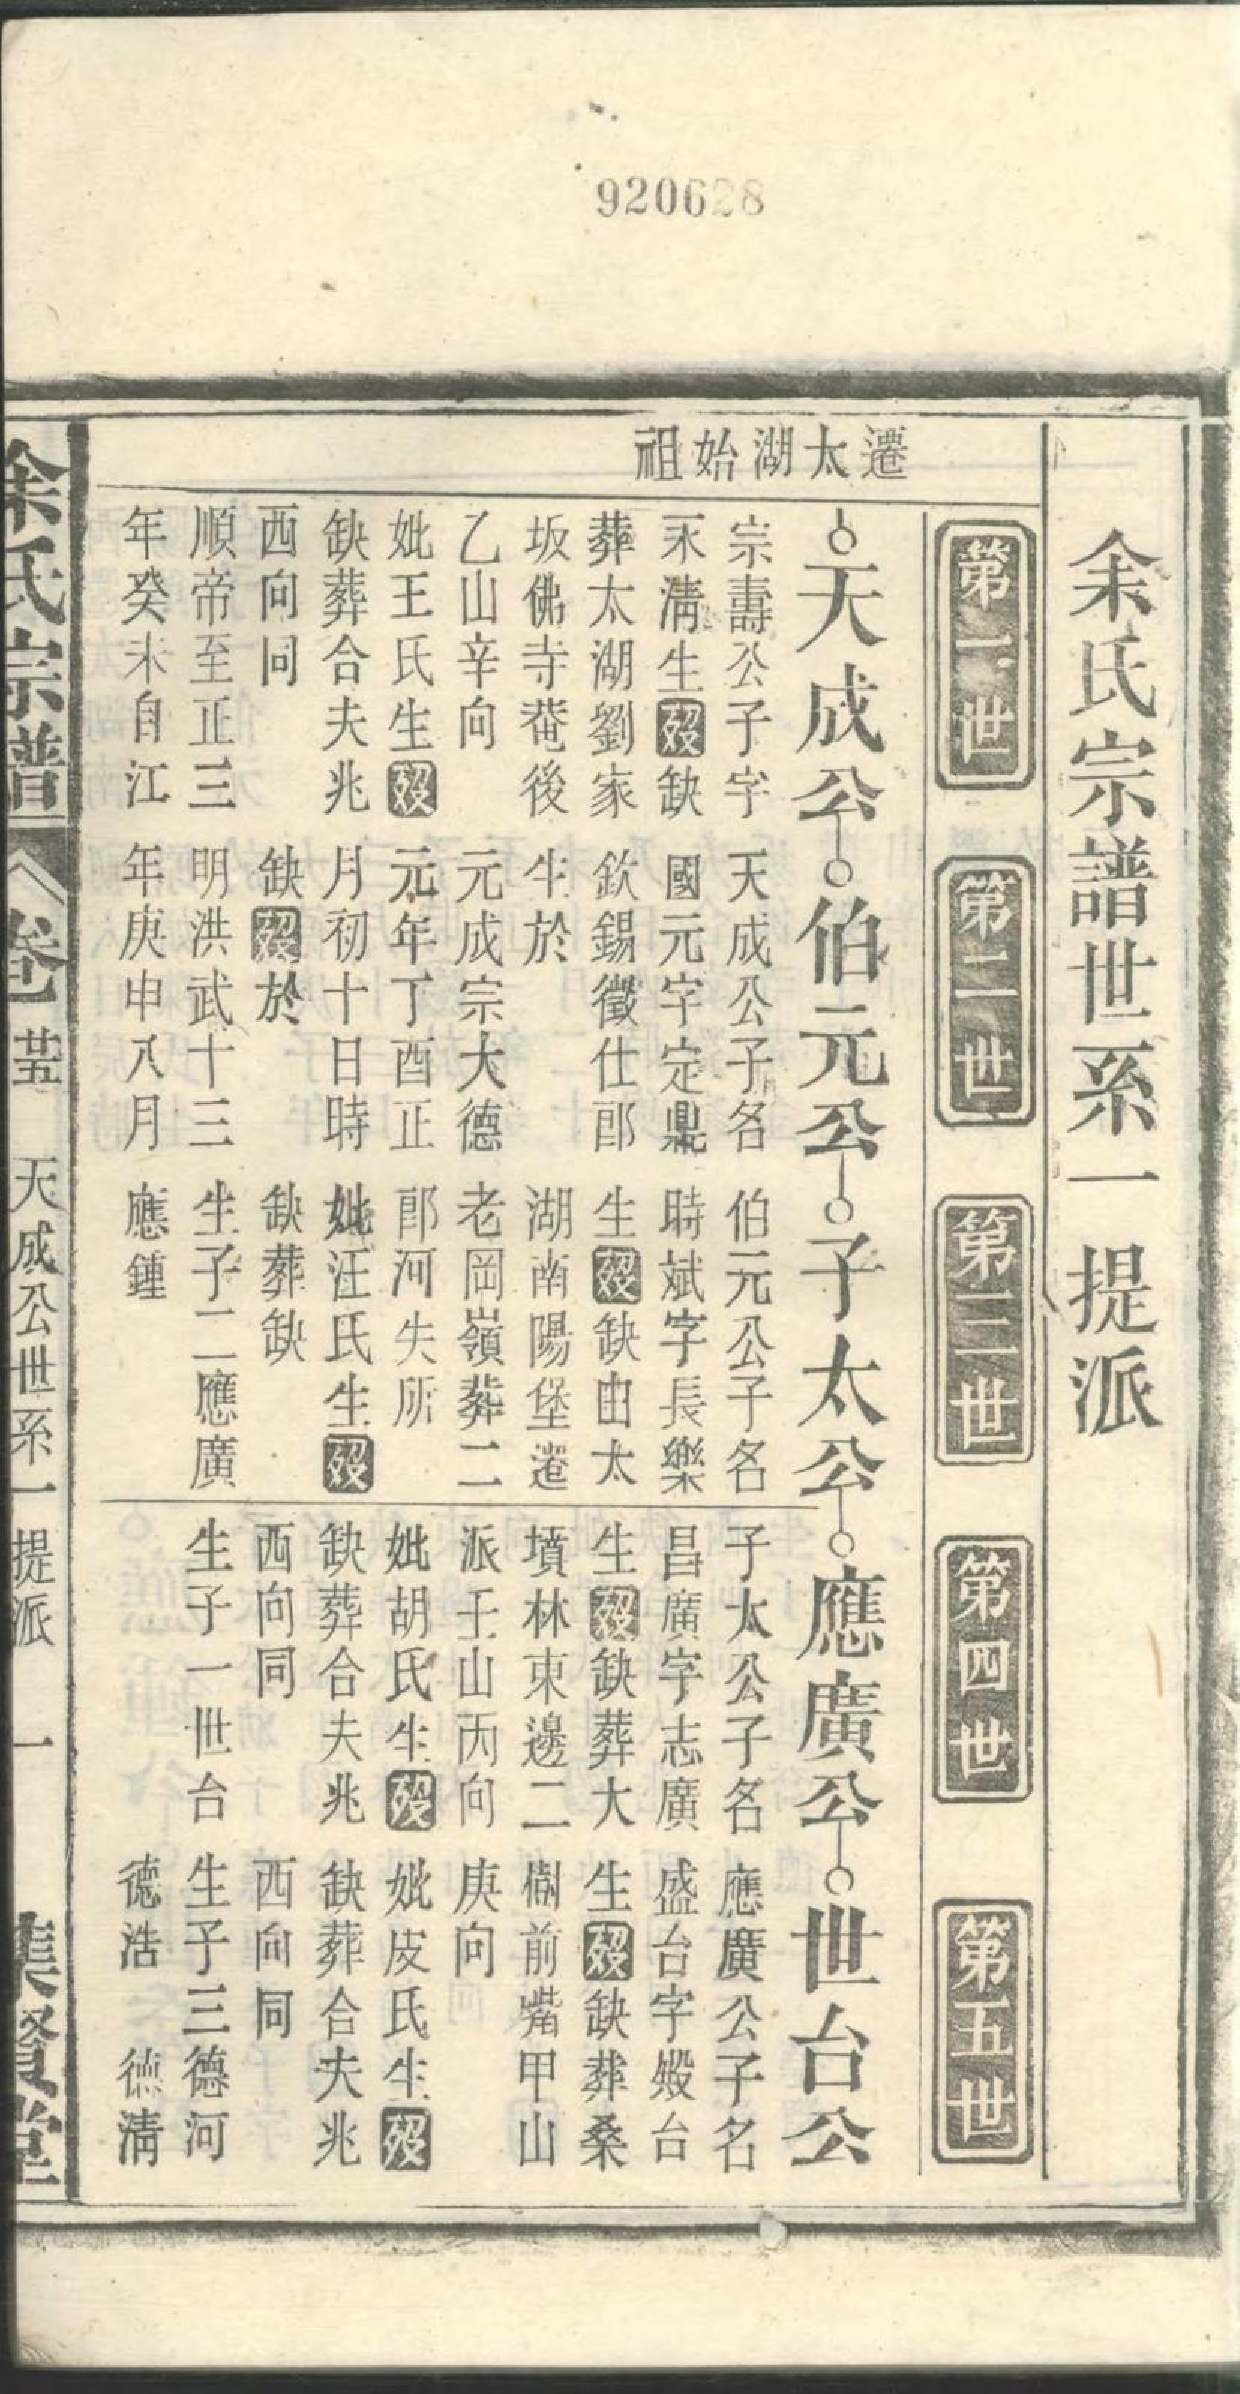 920628
余氏宗譜世系一提派
第一世
第二世
第三世
第四世
第五世
遷太湖始祖
天成公
宗壽公子字
永淸生歿缺
葬太湖劉家
坂佛寺菴後
乙山辛向
妣王氏生歿
缺葬合夫兆
西向同
順帝至正三
年癸未自江
伯元公
天成公子名
國元字定鼎
欽錫徵仕郎
生於
元成宗大德
元年丁酉正
月初十日時
缺歿於
明洪武十三
年庚申八月
子太公
伯元公子名
時斌字長樂
生歿缺由太
湖南陽堡遷
老岡嶺葬二
郎河失所
妣汪氏生歿
缺葬缺
生子二應廣
應鍾
應廣公
子太公子名
昌廣字志廣
生歿缺葬大
墳林東邊二
派壬山丙向
妣胡氏生歿
缺葬合夫兆
西向同
生子一世台
世台公
應廣公子名
盛台字殿台
生歿缺葬桑
樹前嘴甲山
庚向
妣皮氏生歿
缺葬合夫兆
西向同
生子三德河
德浩 德淸
余氏宗譜 卷 天成公世系一提派 一 集賢堂